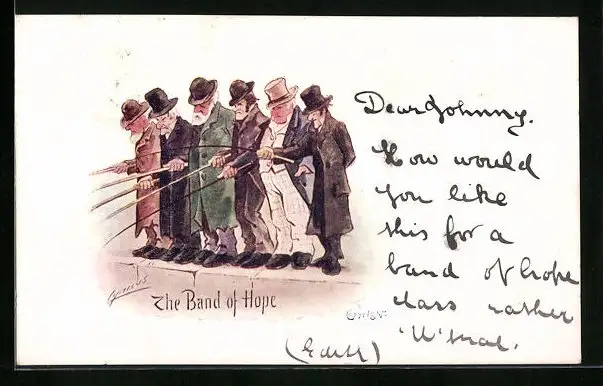 Dear Johnny.
How would
you like
this for a
band of hope
class rather
'U'mal.
(Edith)
The Band of Hope